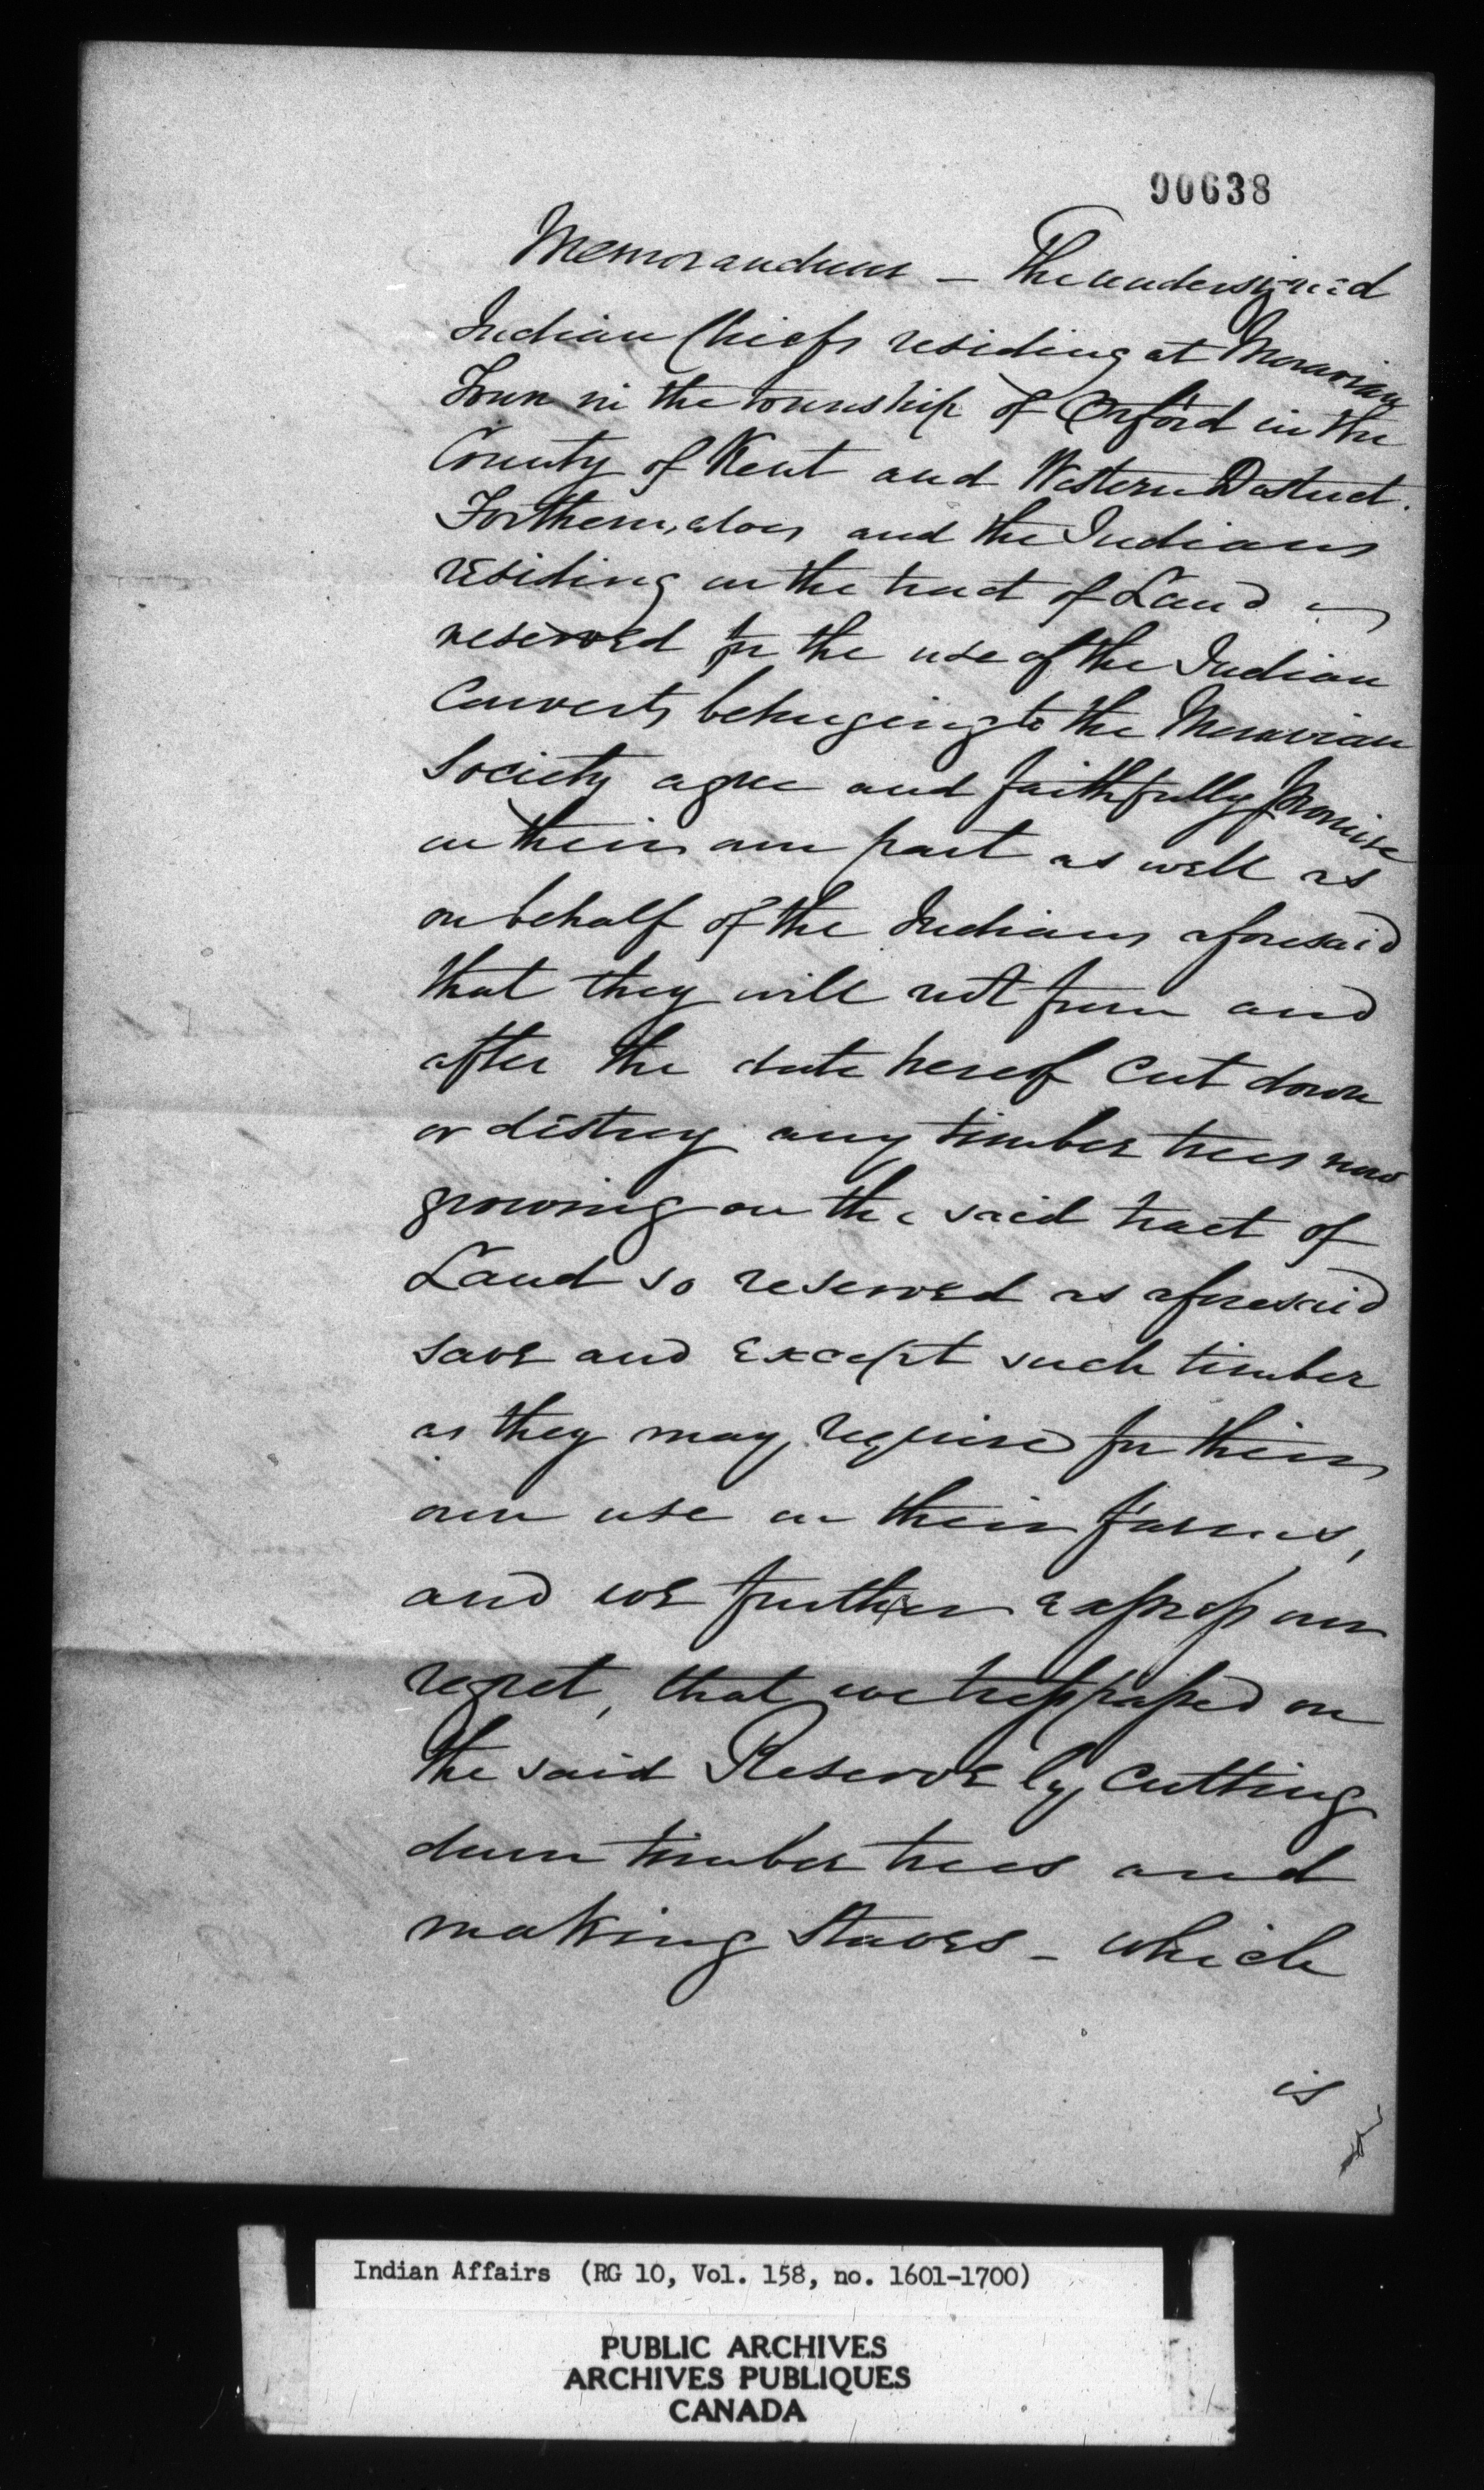 90638
Memorandum – The undersigned
Indian Chiefs residing at Moravian
Town in the township of Orford in the
County of Kent and Western District.
For themselves and the Indians
residing on the tract of Land
reserved for the use of the Indian
Converts belonging to the Moravian
Society agree and faithfully promise
on their own part as well as
on behalf of the Indians aforesaid
that they will not from and
after the date hereof cut down
or destroy any timber trees now
growing on the said tract of
Land so reserved as aforesaid
save and except such timber
as they may require for their
own use on their farms,
and we further express our
regret, that we trespassed on
the said Reserve by cutting
down timber trees and
making Staves – which
is
Indian Affairs (RG 10, Vol. 158, no. 1601-1700)
PUBLIC ARCHIVES
ARCHIVES PUBLIQUES
CANADA